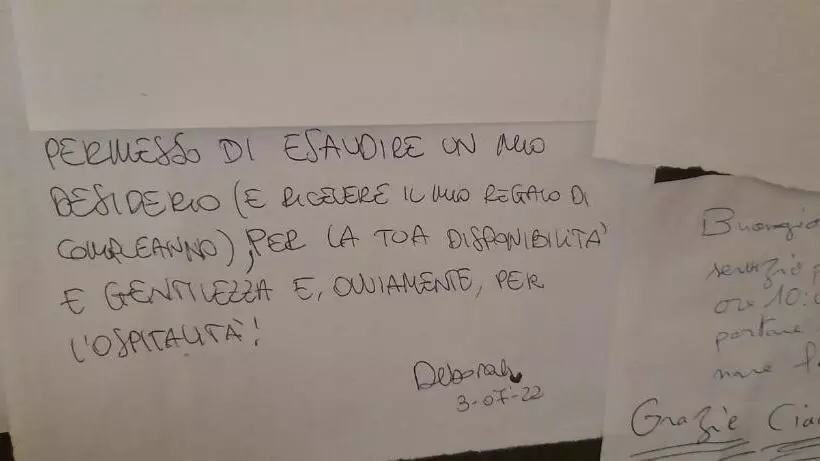 PERMESSO DI ESAUDIRE UN MIO
DESIDERIO (E RICEVERE IL MIO REGALO DI
COMPLEANNO), PER LA TUA DISPONIBILITÀ
E GENTILEZZA E, OVVIAMENTE, PER
L'OSPITALITÀ!
Deborah
3-07-22
Buongio
servizio p
ore 10:0
portare
Grazie Cia